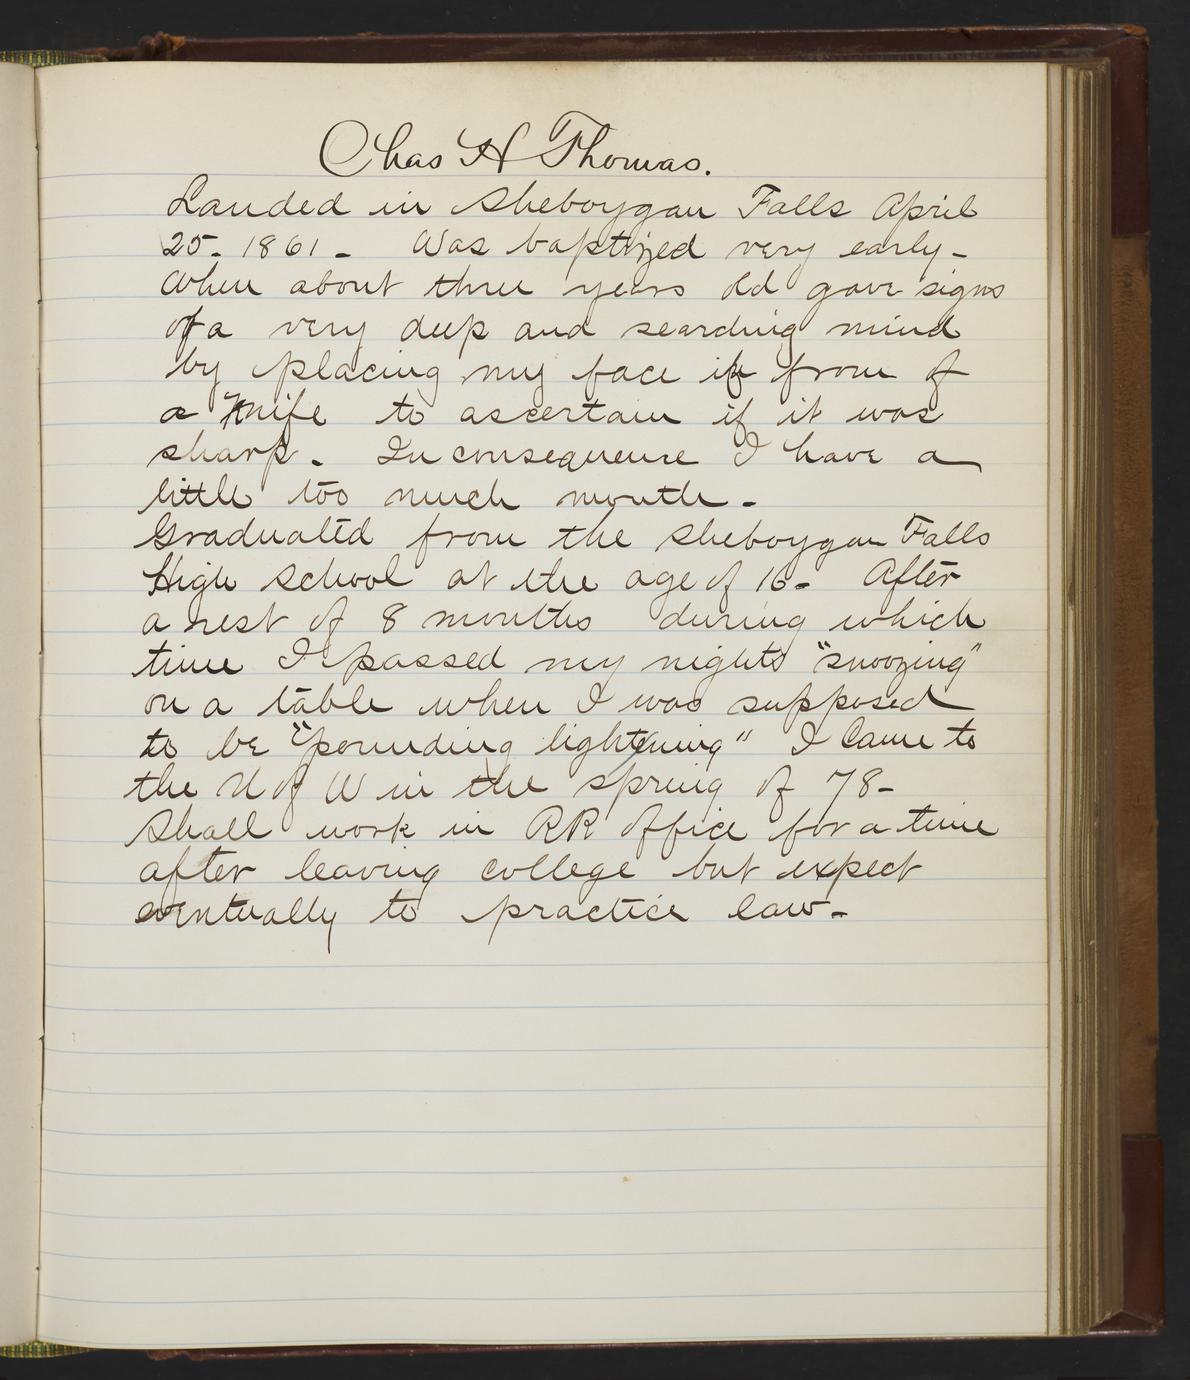 Chas H Thomas.
Landed in Sheboygan Falls April
25. 1861 - Was baptized very early -
When about three years old gave signs
of a very deep and searching mind
by placing my face in from of
a knife to ascertain if it was
sharp. In consequence I have a
little too much mouth -
Graduated from the Sheboygan Falls
High School at the age of 16 - After
a rest of 8 months during which
time I passed my nights "snoozing"
on a table when I was supposed
to be "pounding lightening" I came to
the U of W in the spring of 78 -
Shall work in RR office for a time
after leaving college but expect
eventually to practice law -